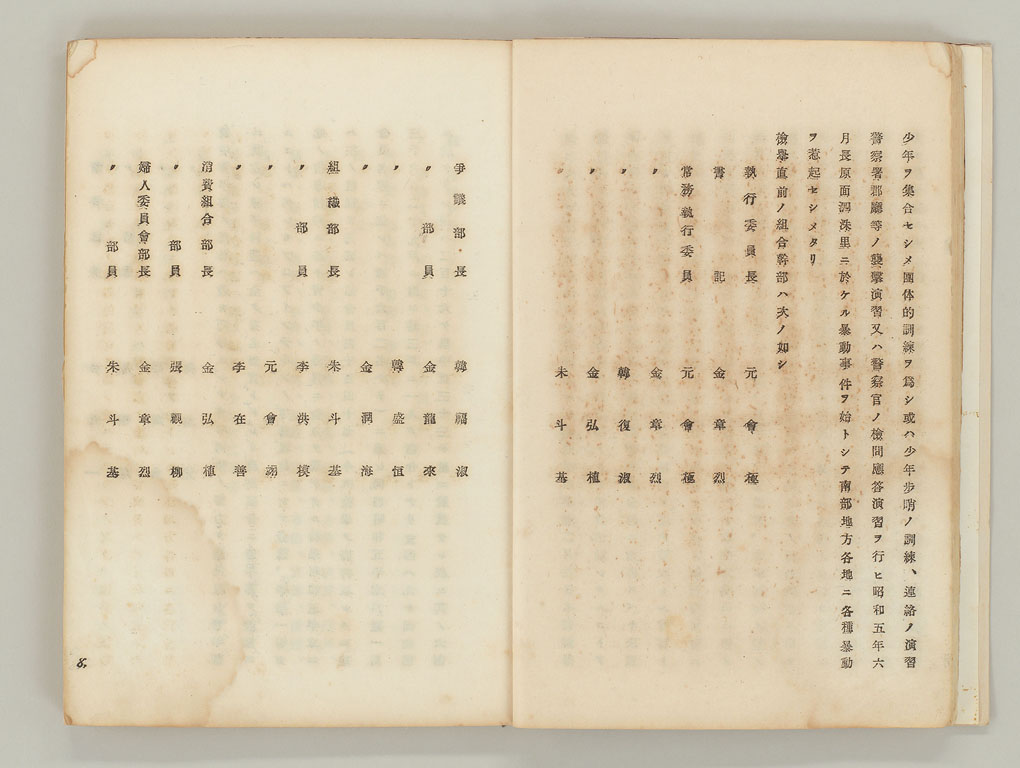 少年ヲ集合セシメ團体的訓練ヲ爲シ或ハ少年步哨ノ訓練、連絡ノ演習
警察署郡廳等ノ襲擊演習又ハ警察官ノ檢問應答演習ヲ行ヒ昭和五年六
月長原面潤洙里ニ於ケル暴動事件ヲ始トシテ南部地方各地ニ各種暴動
ヲ惹起セシメタリ
檢擧直前ノ組合幹部ハ次ノ如シ
執行委員長 元會極
書記 金章烈
常務執行委員 元會極
〃 金章烈
〃 韓復淑
〃 金弘植
〃 朱斗基
爭議部長 韓福淑
〃 部員 金龍來
〃 韓盛恒
〃 金潤海
組織部長 朱斗基
〃 部員 李洪模
〃 元會
〃 李在善
消費組合部長 金弘植
〃 部員 張觀柳
婦人委員會部長 金章烈
〃 部員 朱斗基
8,